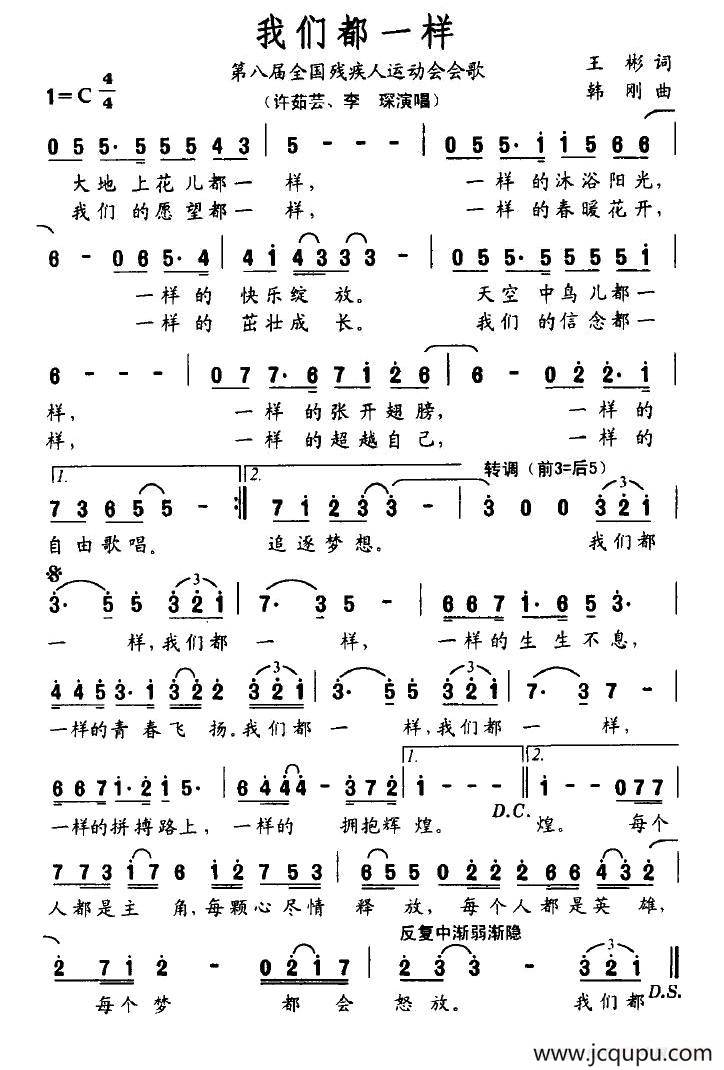 我们都一样
第八届全国残疾人运动会会歌
王 彬 词
1=C 4/4
(许茹芸、李 琛演唱)
韩 刚 曲
0 5 5· 5 5 5 5 4 3 | 5 - - - | 0 5 5· i i i 5 6 6 |
大地 上花儿都一 样, 一样 的沐浴阳光,
我们 的愿望都一 样, 一样 的春暖花开,
6 - 0 6 5· 4 | 4 i 4 3 3 3 - | 0 5 5· 5 5 5 5 5 i |
一样的 快乐绽 放。 天空 中鸟儿都一
一样的 茁壮成 长。 我们 的信念都一
6 - - - | 0 7 7· 6 7 i 2 6 | 6 - 0 2 2· i |
样, 一样 的张开翅膀, 一样的
样, 一样 的超越自己, 一样的
1. 2. 转调(前3=后5)
7 3 6 5 5 - :‖ 7 i 2 3 3 - | 3 0 0 3 2 i |
自由歌唱。 追逐梦想。 我们都
3· 5 5 3 2 i | 7· 3 5 - | 6 6 7 i· 6 5 3· |
一 样,我们都 一 样, 一样的生生不息,
4 4 5 3· i 3 2 2 3 2 i | 3· 5 5 3 2 i | 7· 3 7 - |
一样的青春飞 扬。我们都 一 样,我们都 一 样,
1. 2.
6 6 7 i· 2 i 5· | 6 4 4 4 - 3 7 2 | i - - - ‖ i - - 0 7 7 |
一样的拼搏路上, 一样的 拥抱辉 煌。 煌。 每个
D.C.
7 7 5 3 i 7 6 | i 2 2 7 5 3 | 6 5 5 0 2 2 2 6 6 4 3 2 |
人都是主 角,每颗心尽情 释 放, 每个人都是英雄,
反复中渐弱渐隐
2 7 i 2 - | 0 2 i 7 | 2 3 3 - 3 2 i ‖
每个梦 都 会 怒放。 我们都
D.S.
www.jcqupu.com